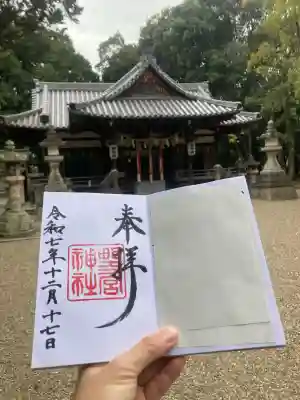 奉拝
野宮神社
令和七年十二月十七日